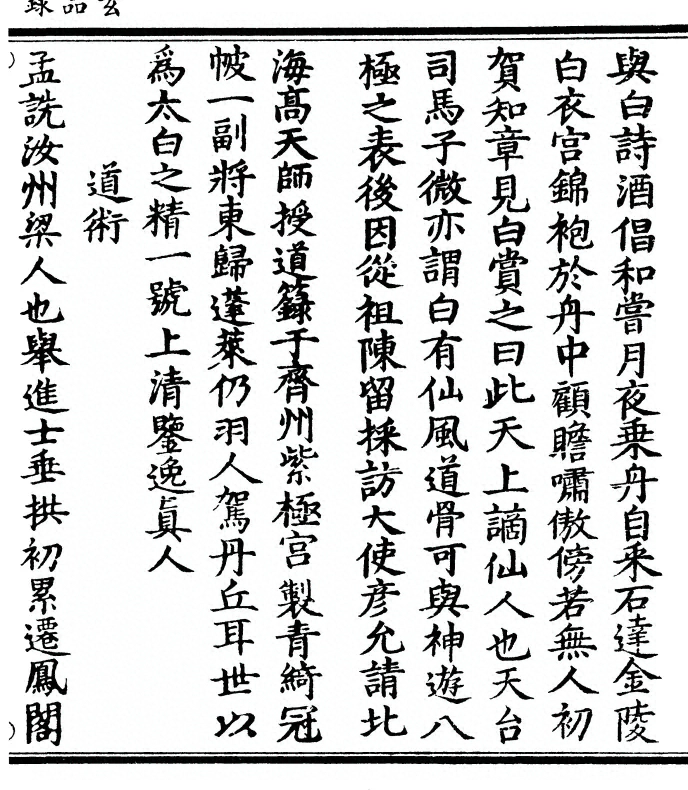 玄品錄
與白詩酒倡和嘗月夜乗舟自采石達金陵
白衣宮錦袍於舟中顧瞻嘯傲傍若無人初
賀知章見白賞之曰此天上謫仙人也天台
司馬子微亦謂白有仙風道骨可與神遊八
極之表後因從祖陳留採訪大使彥允請北
海髙天師授道籙于齊州紫極宮製青綺冠
帔一副將東歸蓬萊仍羽人駕丹丘耳世以
爲太白之精一號上清鑒逸真人
道術
孟詵汝州梁人也舉進士垂拱初累遷鳳閣